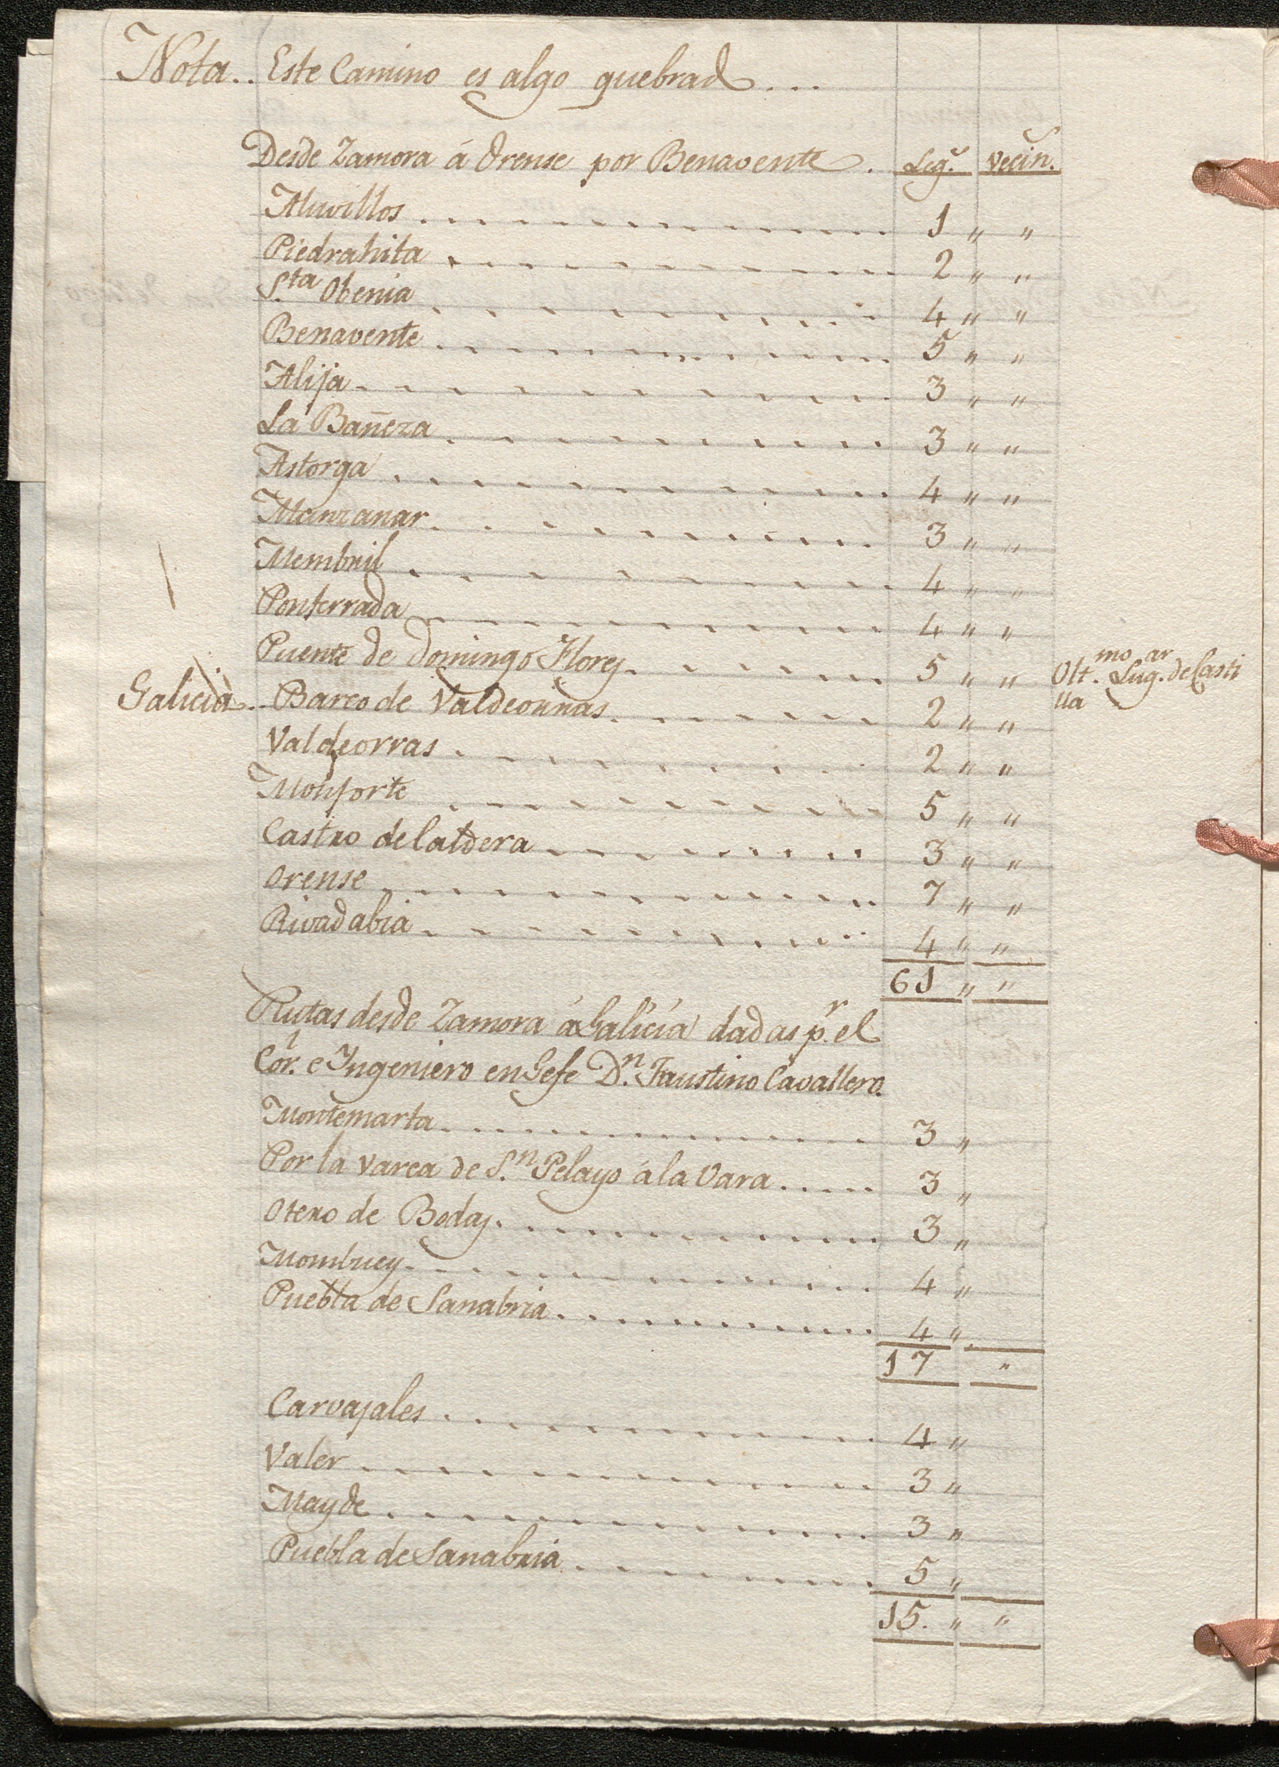 Nota.. Este Camino es algo quebrad...
Desde Zamora á Orense por Benavente. Leg.s Vecin.s
Aluvillos 1 " "
Piedrahita 2 " "
S.ta Obenia 4 " "
Benavente 5 " "
Alija 3 " "
La Bañeza 3 " "
Astorga 4 " "
Manzanar 3 " "
Membril 4 " "
Ponferrada 4 " "
Puente de Domingo Flores 5 " " Olt.mo Lug.ar de Casti
lla
Galicia. Barco de Valdeorras 2 " "
Valdeorras 2 " "
Monforte 5 " "
Castro de Caldera 3 " "
Orense 7 " "
Rivadabia 4 " "
61 " "
Rutas desde Zamora á Galicia dadas p.r el
Cor.l e Ingeniero en Gefe D.n Faustino Cavallero.
Montemarta 3 "
Por la varca de S.n Pelayo á la Vara 3 "
Otero de Bodas 3 "
Mombuey 4 "
Puebla de Sanabria 4 "
17 "
Carvajales 4 "
Valer 3 "
Mayde 3 "
Puebla de Sanabria 5 "
15. " "